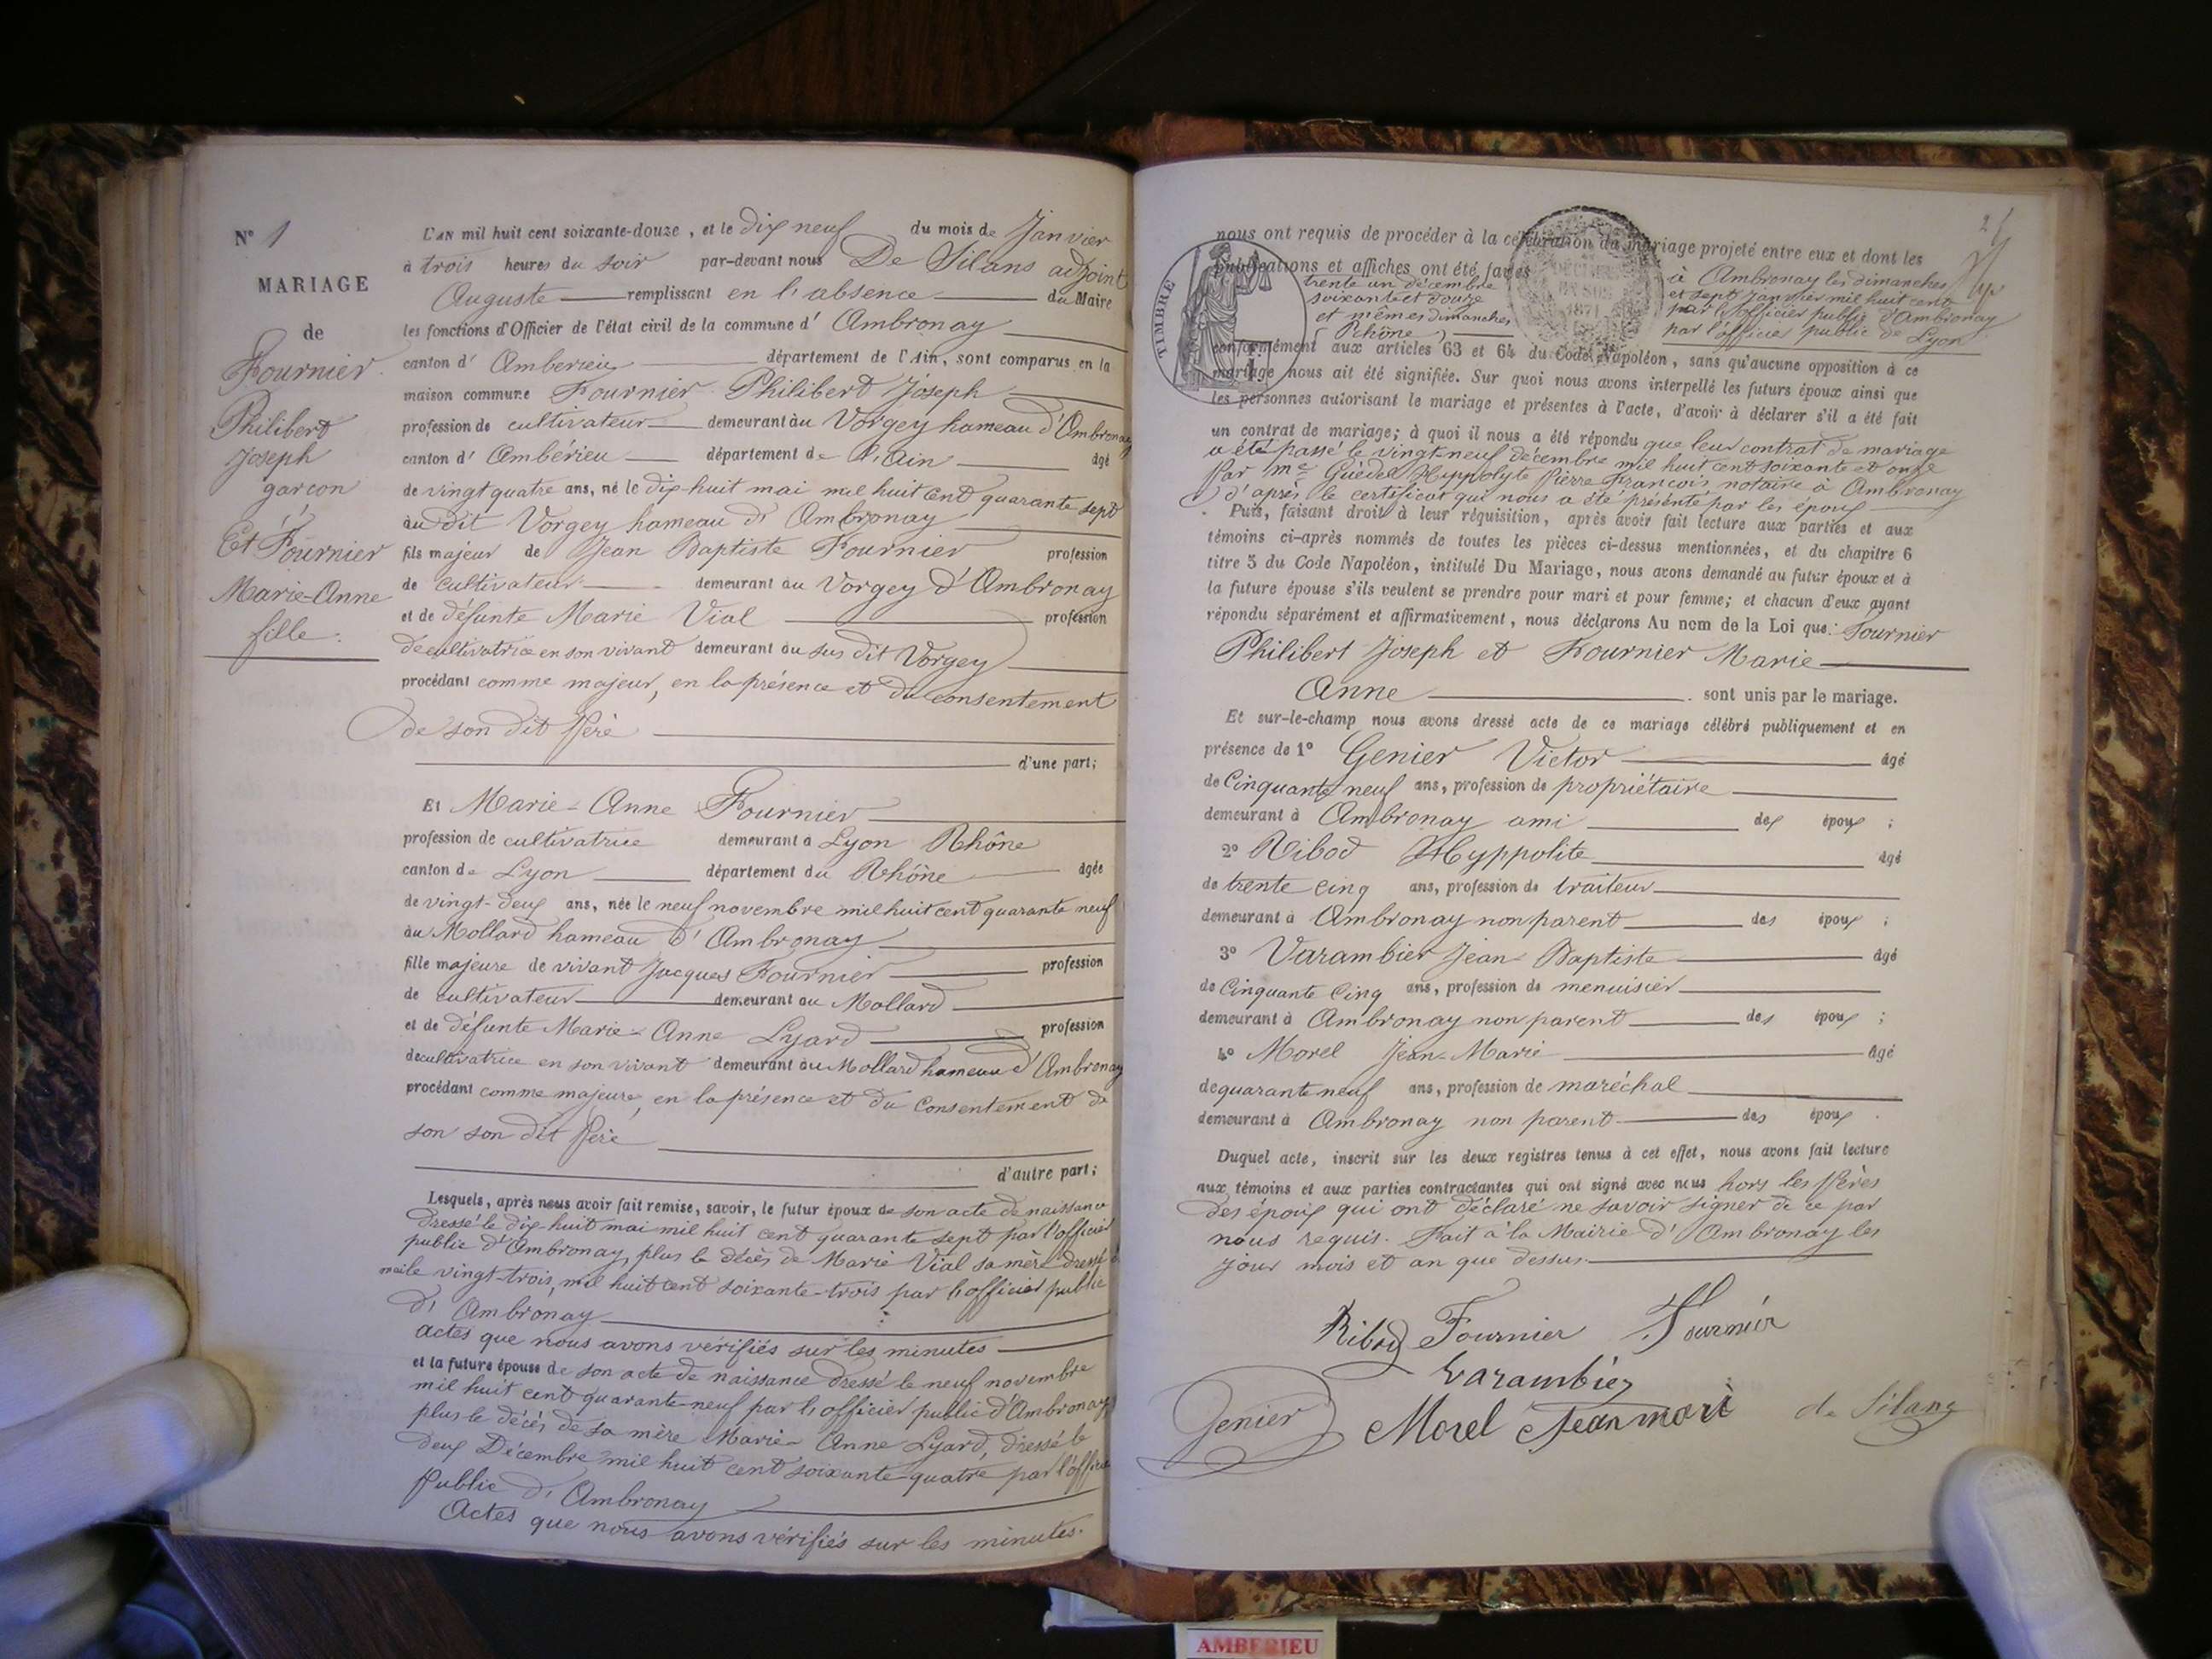 N° 1
MARIAGE
de
Fournier
Philibert
Joseph
garçon
Et Fournier
Marie-Anne
fille.
L'AN mil huit cent soixante-douze, et le dix neuf du mois de Janvier
à trois heures du soir par-devant nous De Silans adjoint
Auguste remplissant en l'absence du Maire
les fonctions d'Officier de l'état civil de la commune d' Ambronay
canton d' Amberieu département de l'Ain, sont comparus en la
maison commune Fournier Philibert Joseph
profession de cultivateur demeurant au Vorgey hameau d'Ambronay
canton d' Ambérieu département de l'Ain âgé
de vingt quatre ans, né le dix-huit mai mil huit cent quarante sept
au dit Vorgey hameau d' Ambronay
fils majeur de Jean Baptiste Fournier profession
de cultivateur demeurant au Vorgey d'Ambronay
et de défunte Marie Vial profession
de cultivatrice en son vivant demeurant au sus dit Vorgey
procédant comme majeur, en la présence et du consentement
de son dit Père
d'une part;
Et Marie-Anne Fournier
profession de cultivatrice demeurant à Lyon Rhône
canton de Lyon département du Rhône âgée
de vingt-deux ans, née le neuf novembre mil huit cent quarante neuf
au Mollard hameau d' Ambronay
fille majeure de vivant Jacques Fournier profession
de cultivateur demeurant au Mollard
et de défunte Marie-Anne Lyard profession
de cultivatrice en son vivant demeurant au Mollard hameau d'Ambronay
procédant comme majeure, en la présence et du Consentement de
son son dit Père
d'autre part;
Lesquels, après nous avoir fait remise, savoir, le futur époux de son acte de naissance
dressé le dix-huit mai mil huit cent quarante sept par l'officier
public d'Ambronay, plus le décès de Marie Vial sa mère dressé
mai le vingt-trois, mil huit cent soixante-trois par l'officier public
d' Ambronay
actes que nous avons vérifiés sur les minutes
et la future épouse de son acte de naissance dressé le neuf novembre
mil huit cent quarante-neuf par l'officier public d'Ambronay
plus le décès de sa mère Marie-Anne Lyard, dressé le
deux Décembre mil huit cent soixante-quatre par l'officier
Public d' Ambronay
Actes que nous avons vérifiés sur les minutes.
TIMBRE
1871
nous ont requis de procéder à la célébration du mariage projeté entre eux et dont les
publications et affiches ont été faites à Ambronay les dimanches
trente un décembre et sept Janvier mil huit cent
soixante et douze par l'officier public d'Ambronay
et mêmes dimanches par l'officier public de Lyon
(Rhône)
conformément aux articles 63 et 64 du Code Napoléon, sans qu'aucune opposition à ce
mariage nous ait été signifiée. Sur quoi nous avons interpellé les futurs époux ainsi que
les personnes autorisant le mariage et présentes à l'acte, d'avoir à déclarer s'il a été fait
un contrat de mariage; à quoi il nous a été répondu que leur contrat de mariage
a été passé le vingt neuf décembre mil huit cent soixante et onze
Par me Guédel Hyppolyte Pierre François notaire à Ambronay
d'après le certificat qui nous a été présenté par les époux
Puis, faisant droit à leur réquisition, après avoir fait lecture aux parties et aux
témoins ci-après nommés de toutes les pièces ci-dessus mentionnées, et du chapitre 6
titre 5 du Code Napoléon, intitulé Du Mariage, nous avons demandé au futur époux et à
la future épouse s'ils veulent se prendre pour mari et pour femme; et chacun d'eux ayant
répondu séparément et affirmativement, nous déclarons Au nom de la Loi que: Fournier
Philibert Joseph et Fournier Marie
Anne sont unis par le mariage.
Et sur-le-champ nous avons dressé acte de ce mariage célébré publiquement et en
présence de 1° Genier Victor âgé
de Cinquante neuf ans, profession de propriétaire
demeurant à Ambronay ami des époux ;
2° Ribod Hyppolite âgé
de trente cinq ans, profession de traiteur
demeurant à Ambronay non parent des époux ;
3° Varambier Jean Baptiste âgé
de Cinquante Cinq ans, profession de menuisier
demeurant à Ambronay non parent des époux ;
4° Morel Jean-Marie âgé
de quarante neuf ans, profession de maréchal
demeurant à Ambronay non parent des époux .
Duquel acte, inscrit sur les deux registres tenus à cet effet, nous avons fait lecture
aux témoins et aux parties contractantes qui ont signé avec nous hors les Pères
des époux qui ont déclaré ne savoir signer de ce par
nous requis. Fait à la Mairie d' Ambronay les
jour mois et an que dessus.
Ribod Fournier Fournier
Varambier
Genier Morel Jean mari de Silans
AMBERIEU